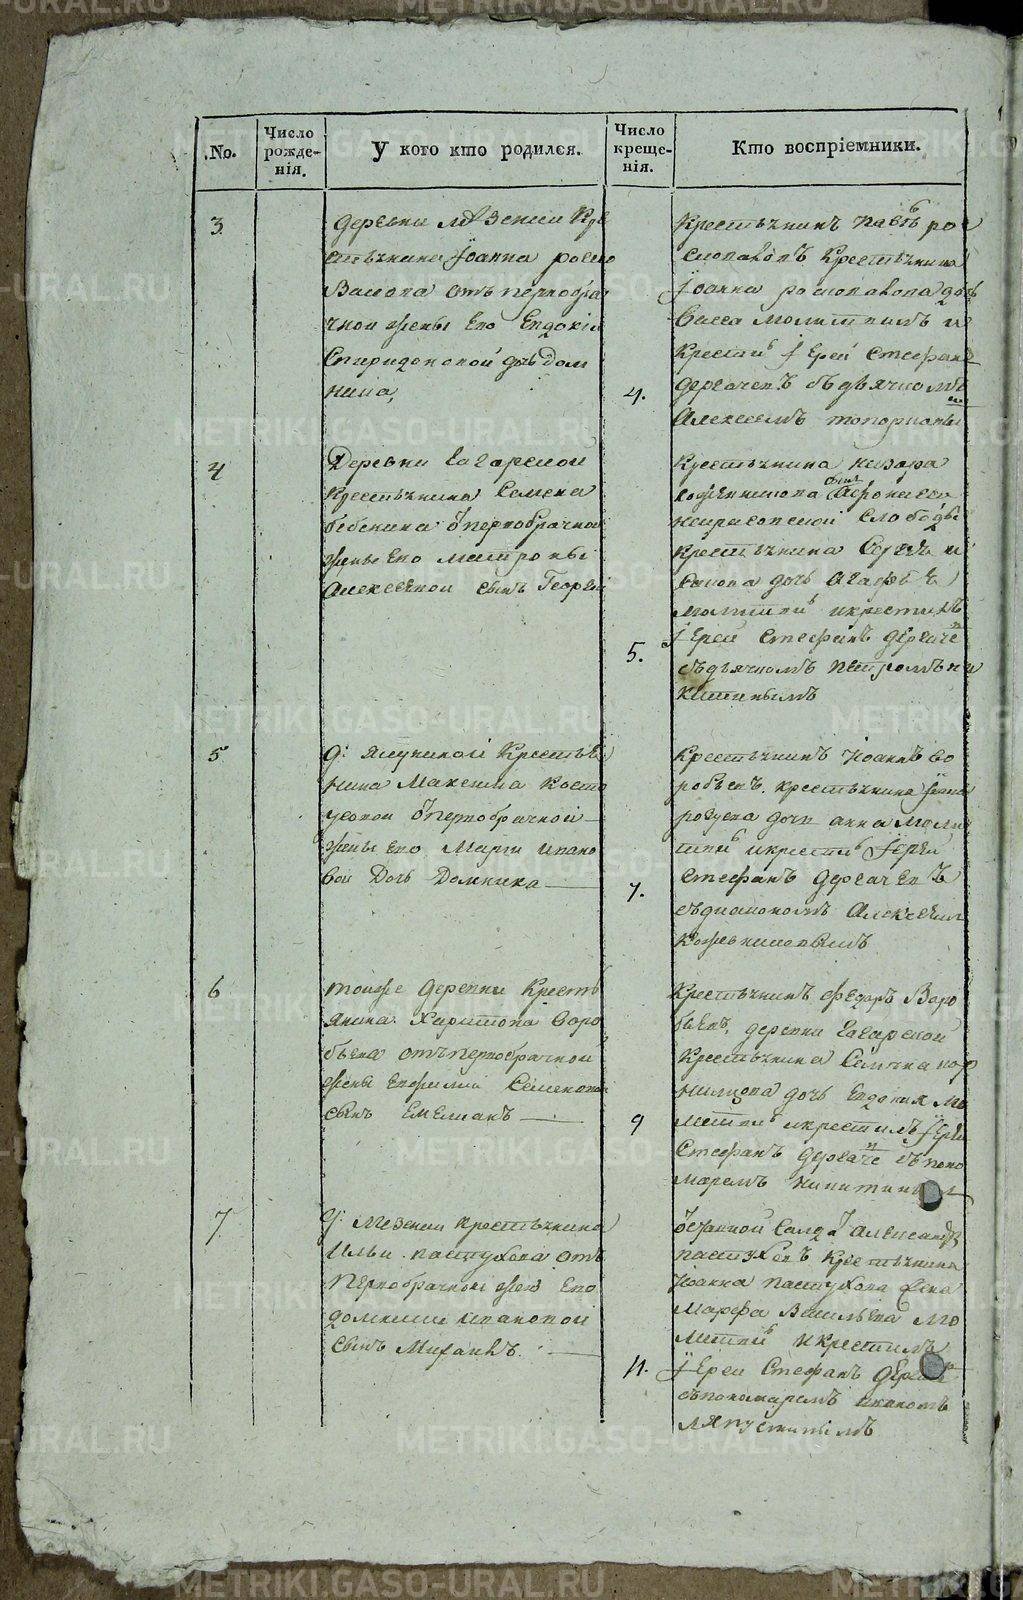 No.
Число рожде- нія.
У кого кто родился.
Число креще- нія.
Кто воспріемники.
3
деревни Мѣзенки Кре
стьянина Іоанна росло
Валова отъ первобра
чной жены Его Евдокіи
Спиридоновой дочь Дом
нина,
4.
Крестьянинъ Павѣ
Крестьянина
Іоанна дочь
Васса молитвилъ и
Крестилъ Іерей Стефанъ
Дергачевъ съ дьячкомъ
Алексеемъ
4
Деревни Гагарской
Крестьянина Семена
первобрачной
жены Его Матроны
Алексѣевой сынъ Георгій
5.
Крестьянина Назара
сынъ Афонасей
Некрасовской слободы
Крестьянина Сергѣя
дочь Агафья
молитвилъ и крестилъ
Іерей Стефанъ Дергаче
съ дьячкомъ Петромъ Ни
китинымъ
5
д: Крестья
нина Максима Косто
усовой первобрачной
жены Его Марьи Ивано
вой Дочь Домника
7.
Крестьянинъ Іоаннъ Во
робьевъ. крестьянина Іоанна
дочь анна моли
твилъ и крестилъ Іерей
Стефанъ Дергачевъ
съ диакономъ Алексѣем
Кожевниковымъ
6
тоиже Деревни Кресть
янина Харитона Воро
бьева отъ первобрачной
жены Евфиміи Семеновой
сынъ Емелианъ
9
Крестьянинъ Федоръ Воро
бьевъ, деревни Гагарской
Крестьянина Семена кор
нилцова дочь Евдокия мо
литвилъ и крестилъ Іерей
Стефанъ Дергаче съ поно
маремъ Никитиным
7
д: Мезенки крестьянина
Ильи пастухова отъ
первобрачной жены Его
домники ивановой
сынъ Михаилъ.
11.
Солда Александр
пастуховъ Крестьянина
Іоанна пастухова жена
Марфа Васильева мо
литвилъ и крестилъ
Іерей Стефанъ Дергач
съ пономаремъ иваномъ
ляпустинымъ
METRIKI.GASO-URAL.RU